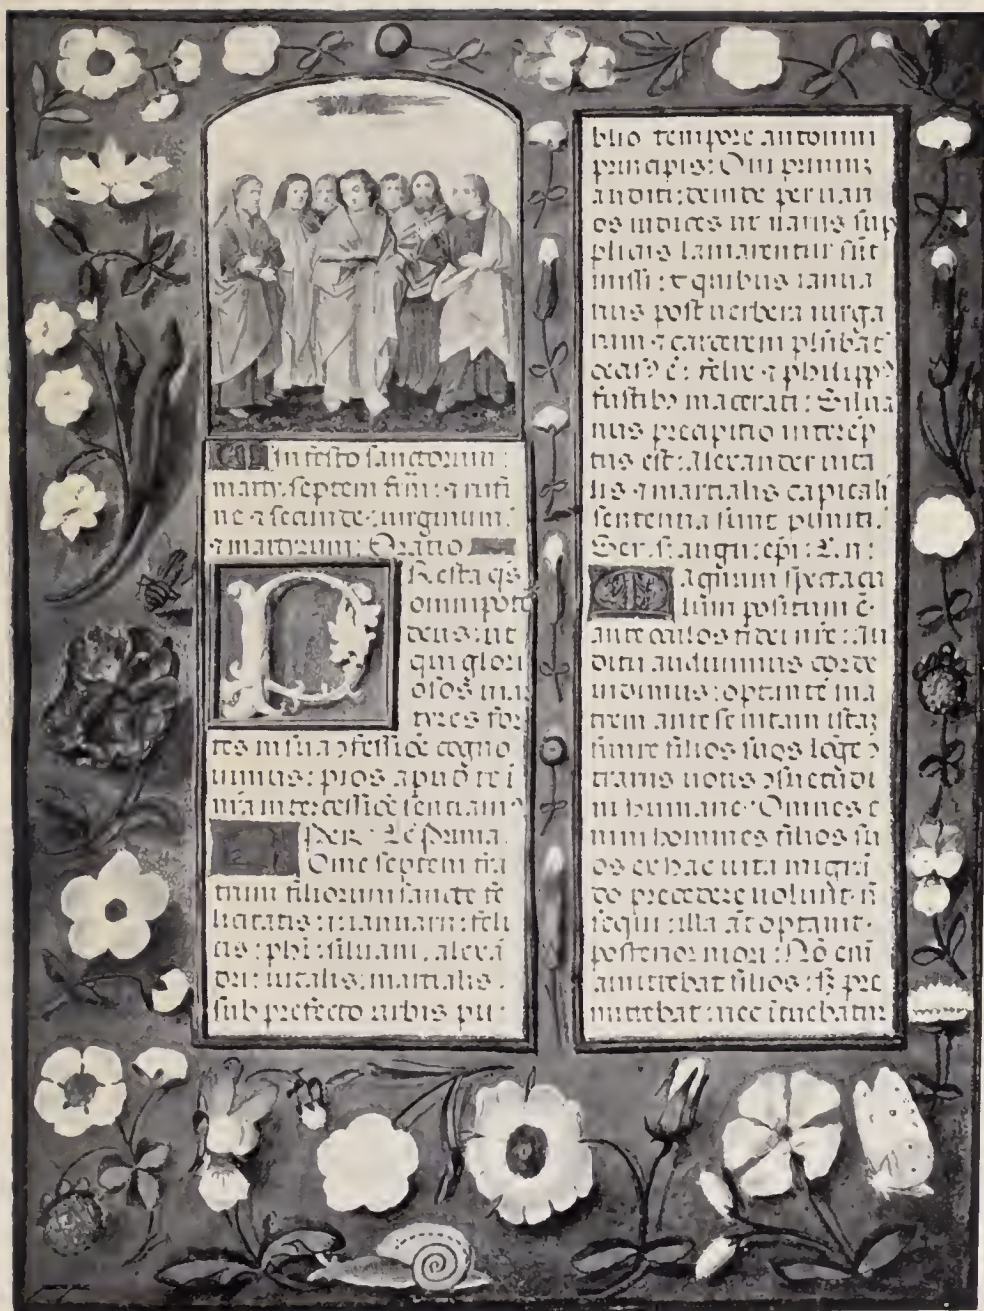 In festo sanctorum
marty. septem frm: ⁊ rufi
ne ⁊ secunde: uirginum:
⁊ martyrum: Oratio
PResta qs
omnipote
deus: ut
qui glori
osos mar
tyres for
tes in sua ɔfessiōe cogno
uimus: pios apud te ī
nr̄a intercessiōe sentiam9
PER: Le prima
ome septem fra
trum filiorum sancte fe
licitatis: ianuarii: feli
cis: phi: siluani. alexā
dri: uitalis. martialis.
sub prefecto urbis pu
blio tempore antonini
principis: Qui primum
auditi: deinde per uari
os iudices ut uariis sup
pliciis laniarentur sūt
missi: e quibus ianua
rius post uerbera uirga
rum ⁊ carcerem plūbat
occis9 ē: felix ⁊ philipp9
fustib9 macerati: Silua
nus precipitio interēp
tus est: alexander uita
lis ⁊ martialis capitali
sententia sunt puniti.
Ser. s. augu: epi:
Magnum spectacu
lum positum ē
ante oculos fidei nr̄e: au
ditu audiuimus corde
uidimus: optante ma
trem ante se uitam istaz
finire filios suos lōge ɔ
trariis uotis ɔsuetūdi
ni humane: Omnes e
nim homines filios su
os ex hac uita migrā
do precedere uolunt: n̄
sequi: illa at optauit
posterior mori: Nō eni
amittebat filios: sȝ pre
mittebat: nec ītuebatur